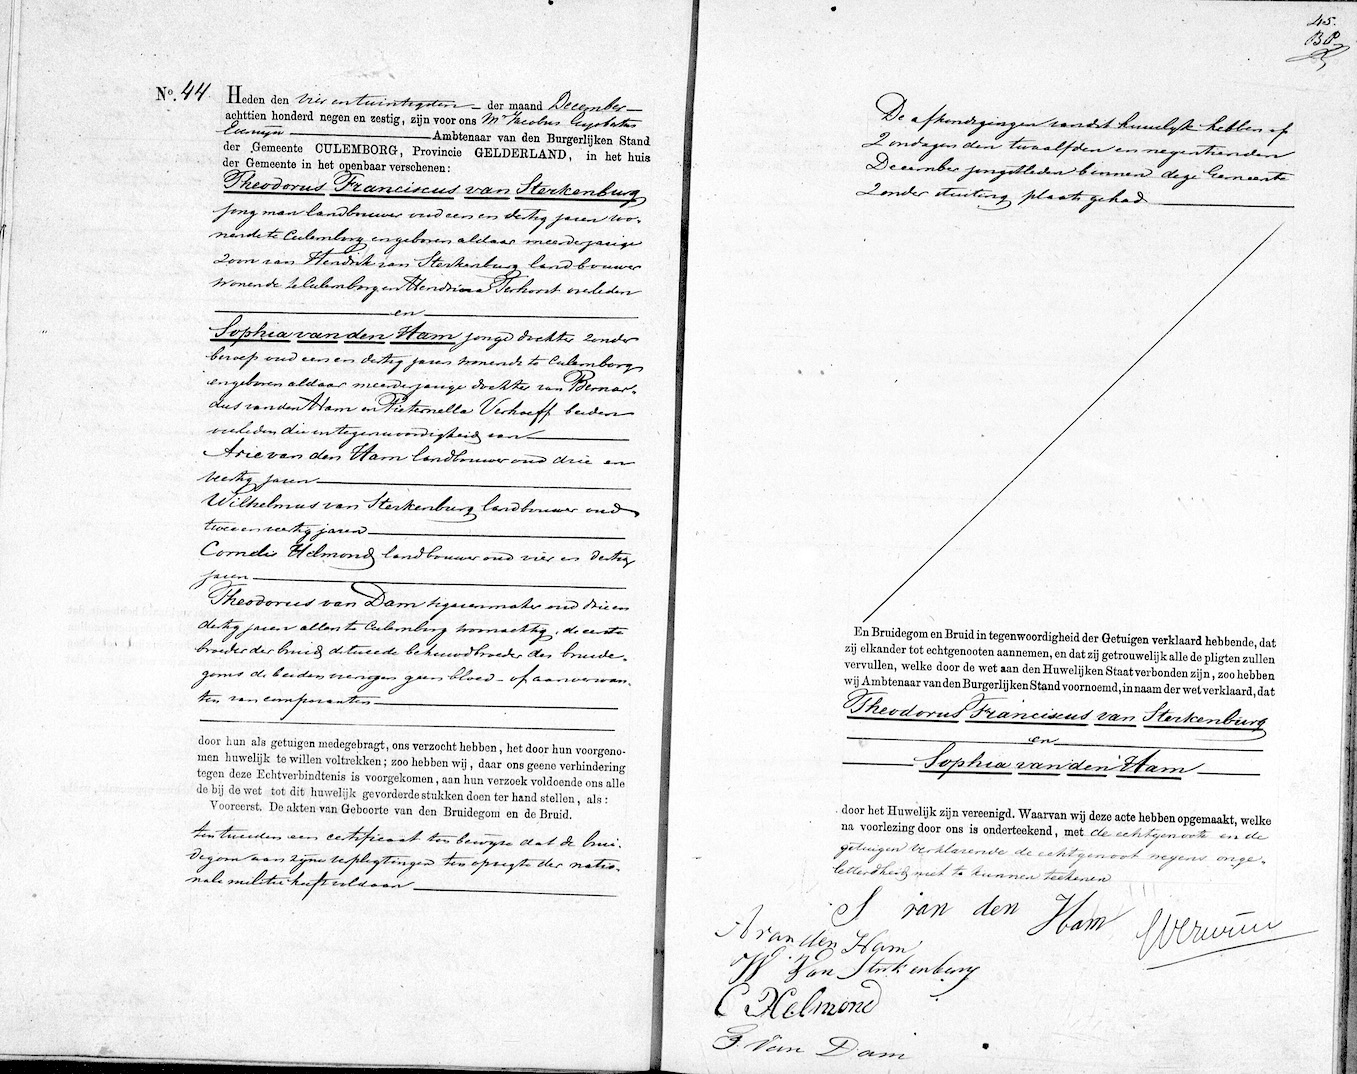 No. 44
Heden den vier en twintigsten der maand December
achttien honderd negen en zestig, zijn voor ons Mr Jacobus Gysbertus
Ambtenaar van den Burgerlijken Stand
der Gemeente CULEMBORG, Provincie GELDERLAND, in het huis
der Gemeente in het openbaar verschenen:
Theodorus Franciscus van Sterkenburg
jongman landbouwer oud een en dertig jaren wo-
nende te Culemborg en geboren aldaar meerderjarige
Zoon van Hendrik van Sterkenburg landbouwer
wonende te Culemborg en Hendrina Terhorst overleden
en
Sophia van den Ham jonge dochter zonder
beroep oud een en dertig jaren wonende te Culemborg
en geboren aldaar meerderjarige dochter van Bernar-
dus van den Ham en Pieternella Verhoeff beiden
overleden die in tegenwoordigheid van
Arie van den Ham landbouwer oud drie en
veertig jaren
Wilhelmus van Sterkenburg landbouwer oud
twee en veertig jaren
Cornelis Helmond landbouwer oud vier en dertig
jaren
Theodorus van Dam sigarenmaker oud drie en
dertig jaren allen te Culemborg woonachtig, de eerste
broeder der bruid de tweede behuwdbroeder des bruide-
goms de beiden overigen geen bloed- of aanverwan-
ten van comparanten
door hun als getuigen medegebragt, ons verzocht hebben, het door hun voorgeno-
men huwelijk te willen voltrekken; zoo hebben wij, daar ons geene verhindering
tegen deze Echtverbindtenis is voorgekomen, aan hun verzoek voldoende ons alle
de bij de wet tot dit huwelijk gevorderde stukken doen ter hand stellen, als:
Vooreerst. De akten van Geboorte van den Bruidegom en de Bruid.
ten tweeden een certificaat ten bewyze dat de brui-
degom aan zyne verpligtingen ten opzigte der natio-
nale militie heeft voldaan
45.
De afkondigingen van dit huwelyk hebben op
Zondagen den twaalfden en negentienden
December jongstleden binnen deze Gemeente
Zonder stuiting plaats gehad
En Bruidegom en Bruid in tegenwoordigheid der Getuigen verklaard hebbende, dat
zij elkander tot echtgenooten aannemen, en dat zij getrouwelijk alle de pligten zullen
vervullen, welke door de wet aan den Huwelijken Staat verbonden zijn, zoo hebben
wij Ambtenaar van den Burgerlijken Stand voornoemd, in naam der wet verklaard, dat
Theodorus Franciscus van Sterkenburg
en
Sophia van den Ham
door het Huwelijk zijn vereenigd. Waarvan wij deze acte hebben opgemaakt, welke
na voorlezing door ons is onderteekend, met de echtgenoote en de
getuigen verklarende de echtgenoot wegens onge-
letterdheid niet te kunnen teekenen
S van den Ham
A van den Ham
W Van Sterkenburg
C Helmond
T. Van Dam